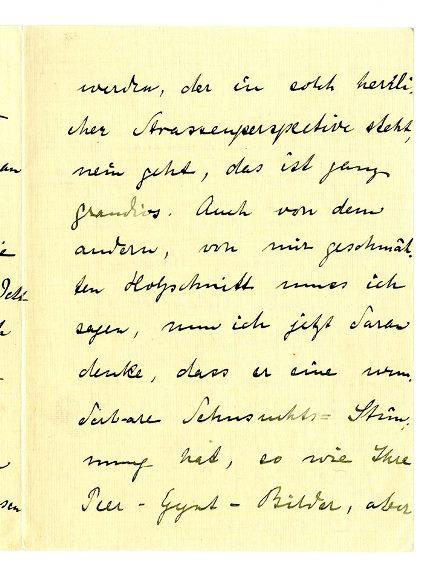 werden, der in solch herrli-
cher Strassenperspektive steht,
nein geht, das ist ganz
grandios. Auch von dem
an
andern, von mir geschmäh-
ten Holzschnitt muss ich
sagen, nun ich jetzt daran
denke, dass er eine wun-
derbare Sehnsuchts-Stim-
mung hat, so wie Ihre
Peer-Gynt-Bilder, aber